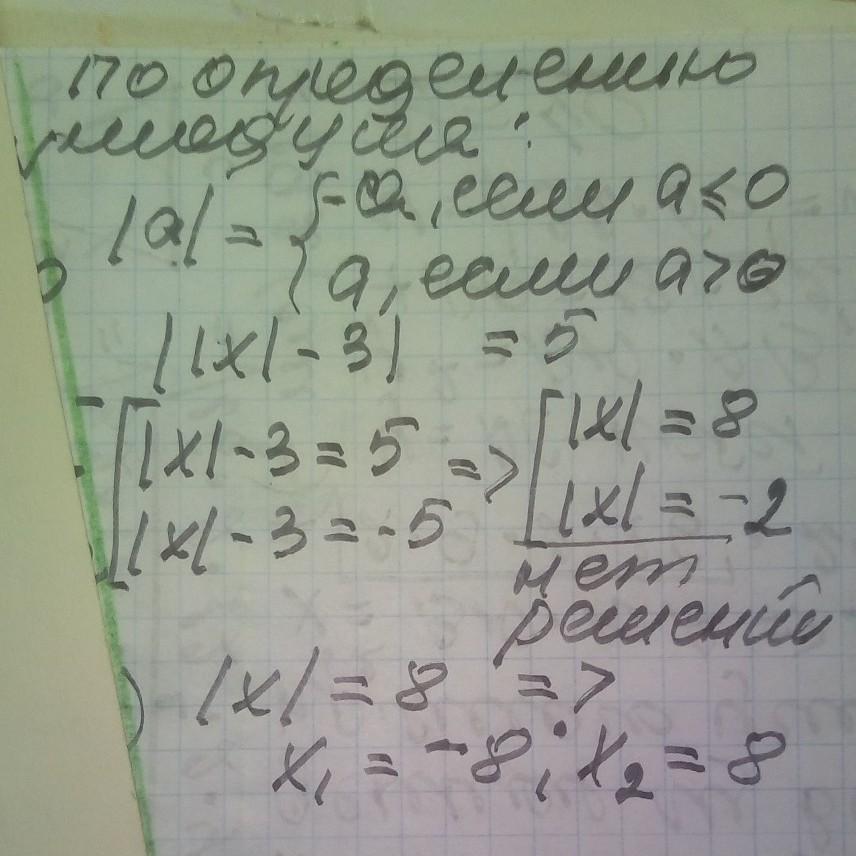 по определению
модуля:
|a| = { -a, если a ≤ 0
a, если a > 0
||x| - 3| = 5
[ |x| - 3 = 5 => [ |x| = 8
|x| - 3 = -5 |x| = -2
нет
решений
|x| = 8 =>
x₁ = -8; x₂ = 8